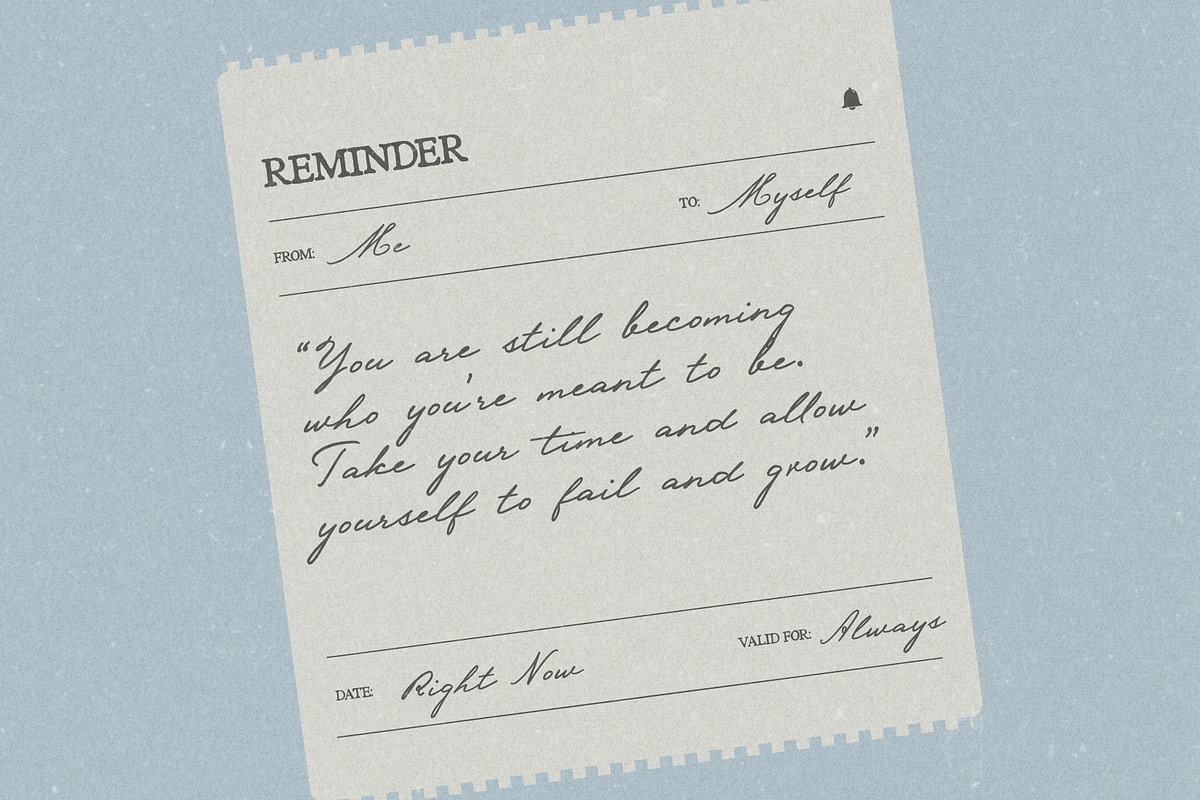 REMINDER
FROM: Me TO: Myself
“You are still becoming
who you're meant to be.
Take your time and allow
yourself to fail and grow.”
DATE: Right Now VALID FOR: Always